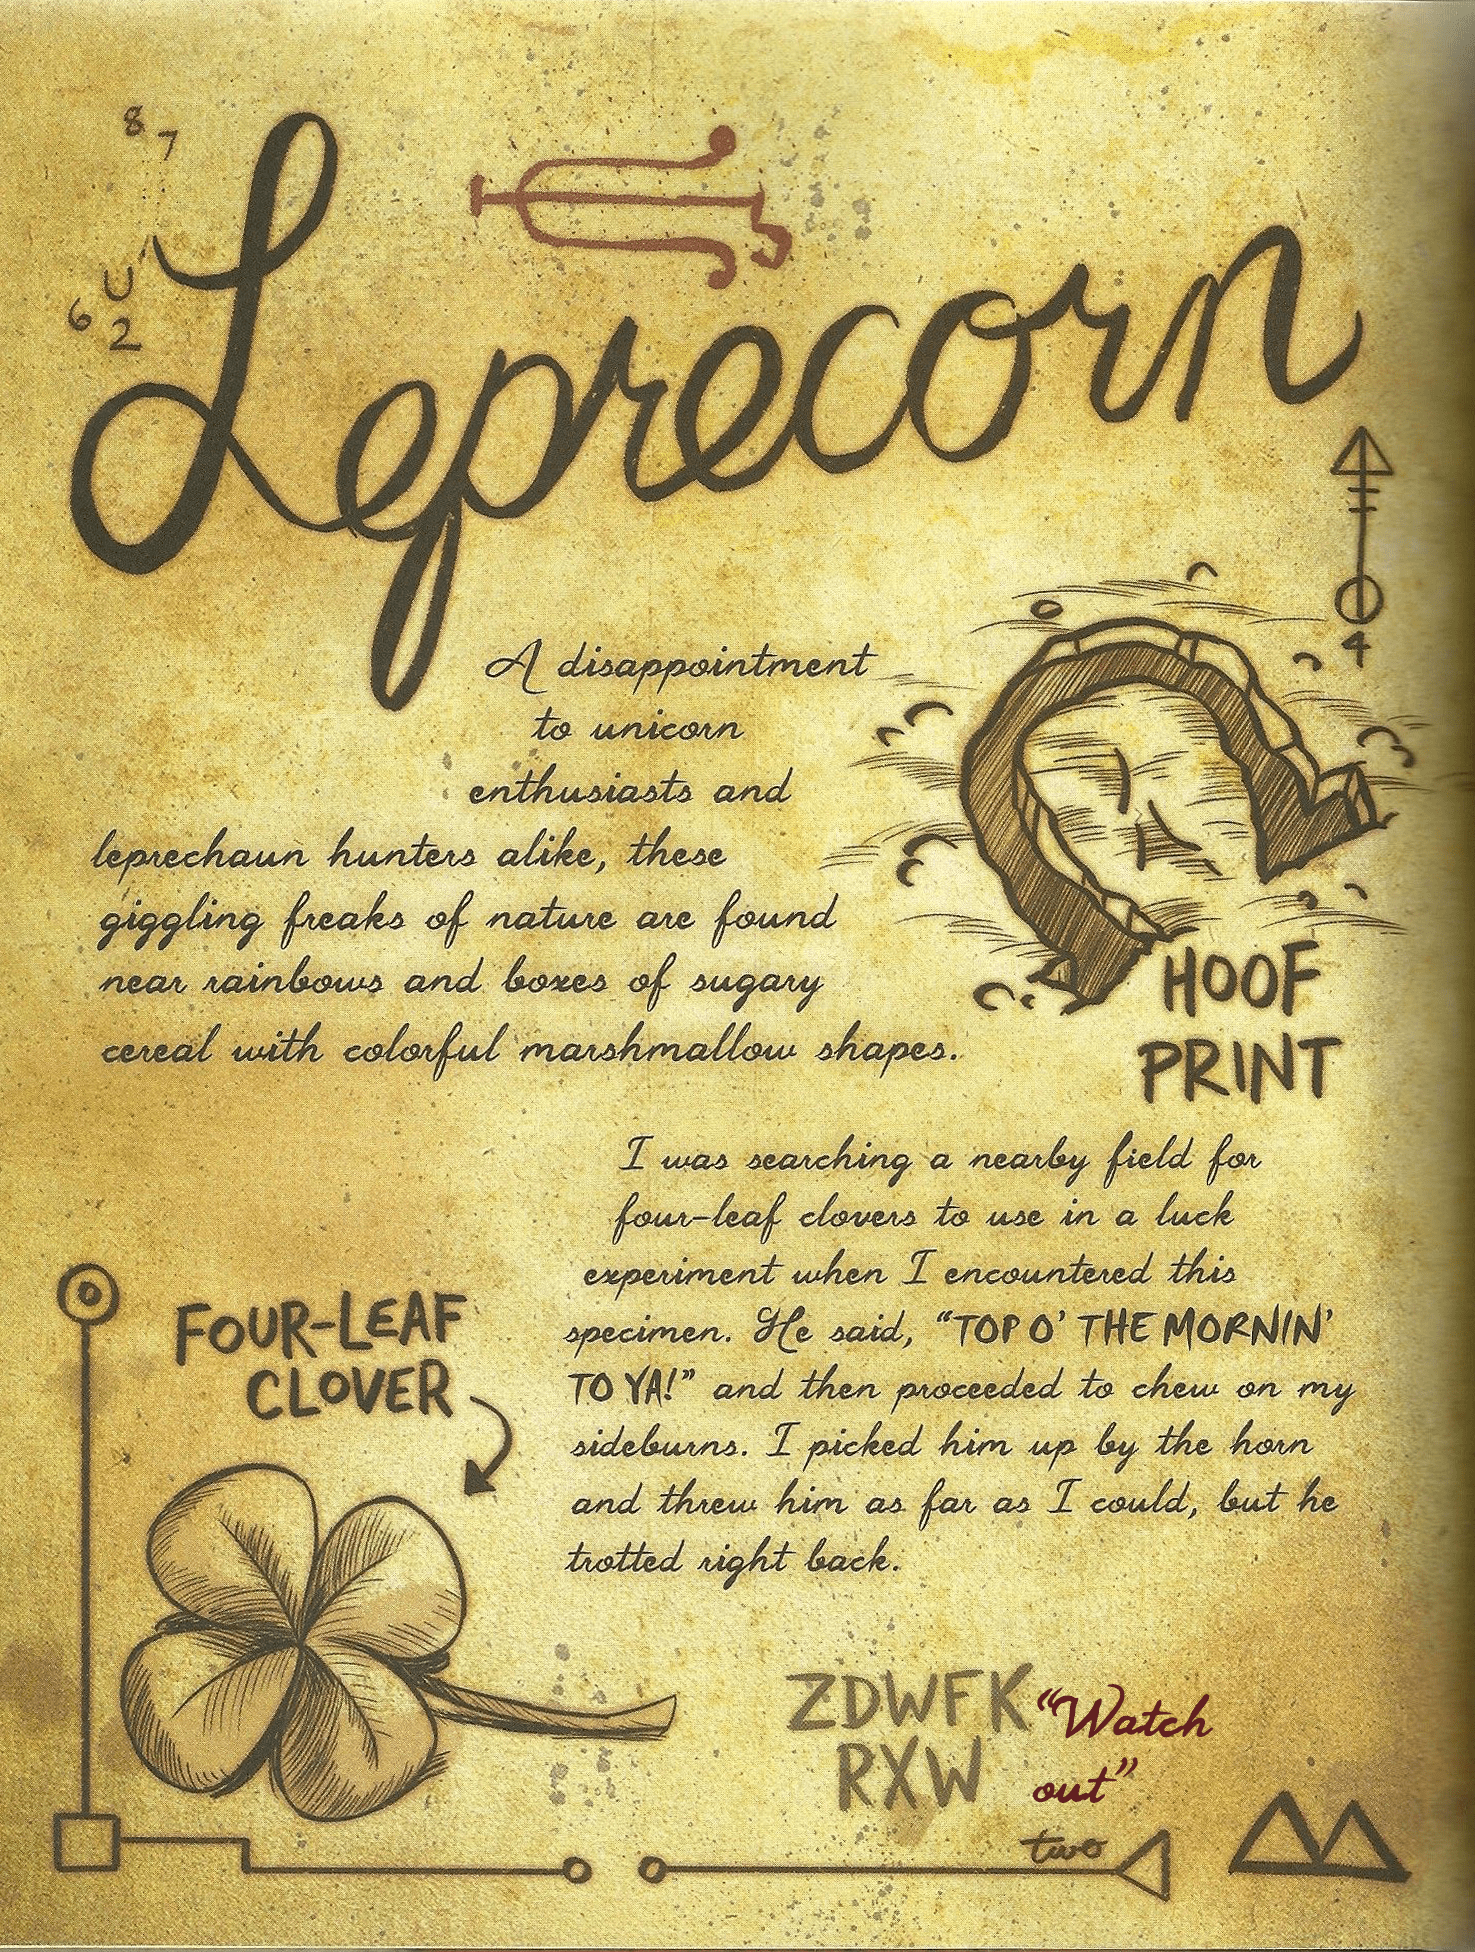 8
7
U
6
2
Leprecorn
4
A disappointment
to unicorn
enthusiasts and
leprechaun hunters alike, these
giggling freaks of nature are found
near rainbows and boxes of sugary
cereal with colorful marshmallow shapes.
HOOF
PRINT
I was searching a nearby field for
four-leaf clovers to use in a luck
experiment when I encountered this
specimen. He said, “TOP O’ THE MORNIN’
TO YA!” and then proceeded to chew on my
sideburns. I picked him up by the horn
and threw him as far as I could, but he
trotted right back.
FOUR-LEAF
CLOVER
ZDWFK “Watch
RXW out”
two